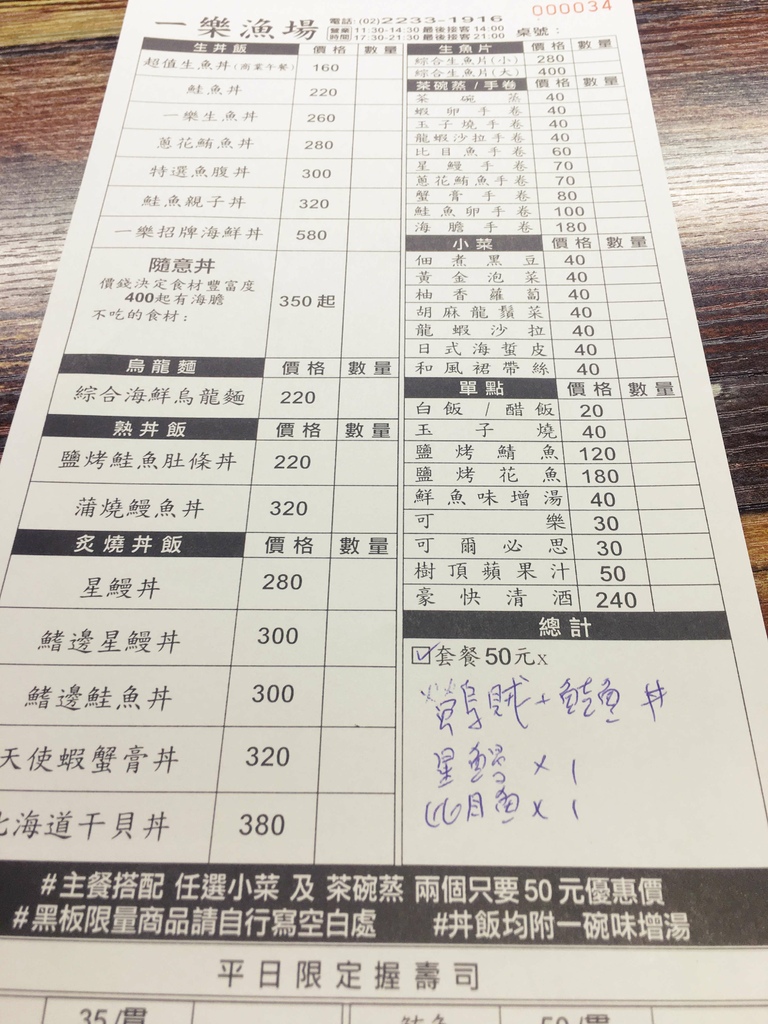 一樂漁場
電話:(02)2233-1916
營業時間 11:30-14:30 最後接客14:00
17:30-21:30 最後接客21:00
桌號:
000034
生丼飯 價格 數量
超值生魚丼(商業午餐) 160
鮭魚丼 220
一樂生魚丼 260
蔥花鮪魚丼 280
特選魚腹丼 300
鮭魚親子丼 320
一樂招牌海鮮丼 580
隨意丼
價錢決定食材豐富度
400起有海膽
不吃的食材:
350起
烏龍麵 價格 數量
綜合海鮮烏龍麵 220
熟丼飯 價格 數量
鹽烤鮭魚肚條丼 220
蒲燒鰻魚丼 320
炙燒丼飯 價格 數量
星鰻丼 280
鰭邊星鰻丼 300
鰭邊鮭魚丼 300
天使蝦蟹膏丼 320
北海道干貝丼 380
生魚片 價格 數量
綜合生魚片(小) 280
綜合生魚片(大) 400
茶碗蒸/手卷 價格 數量
茶碗蒸 40
蝦卵手卷 40
玉子燒手卷 40
龍蝦沙拉手卷 40
比目魚手卷 60
星鰻手卷 70
蔥花鮪魚手卷 70
蟹膏手卷 80
鮭魚卵手卷 100
海膽手卷 180
小菜 價格 數量
佃煮黑豆 40
黃金泡菜 40
柚香蘿蔔 40
胡麻龍鬚菜 40
龍蝦沙拉 40
日式海蜇皮 40
和風裙帶絲 40
單點 價格 數量
白飯/醋飯 20
玉子燒 40
鹽烤鯖魚 120
鹽烤花魚 180
鮮魚味增湯 40
可樂 30
可爾必思 30
樹頂蘋果汁 50
豪快清酒 240
總計
套餐50元x
烏賊+鮭魚丼
星鰻 x 1
比目魚 x 1
#主餐搭配 任選小菜 及 茶碗蒸 兩個只要50元優惠價
#黑板限量商品請自行寫空白處 #丼飯均附一碗味增湯
平日限定握壽司
35/貫 50/貫